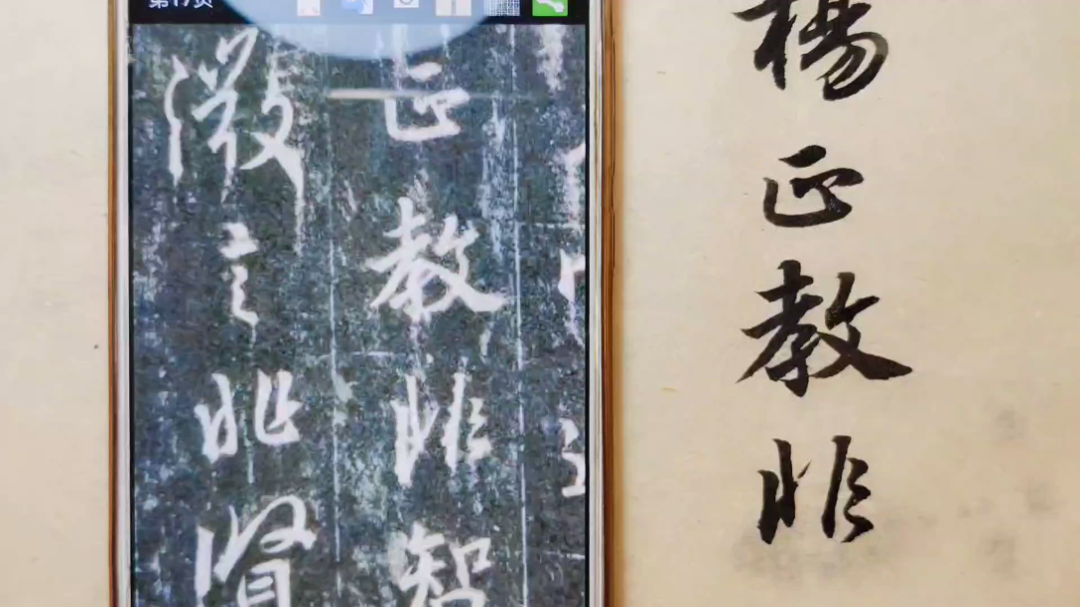 第17页
正教非智
微言非賢
楊正教非